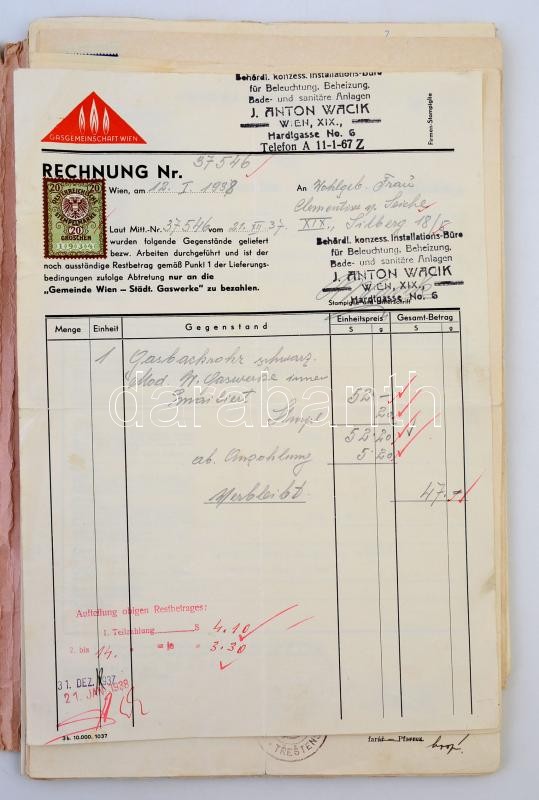 Behördl. konzess. Installations-Büro
für Beleuchtung, Beheizung,
Bade- und sanitäre Anlagen
J. ANTON WACIK
WIEN, XIX.,
Hardtgasse No. 6
Telefon A 11-1-67 Z
Firmen-Stampiglie
GASGEMEINSCHAFT-WIEN
RECHNUNG Nr. 37546
20 20
ÖSTERREICHISCHE
STEMPELMARKE
20
GROSCHEN
Wien, am 12. I. 1938
An Wohlgeb. Frau
Clementine
XIX., 18/8
Laut Mitt.-Nr. 37546 vom 21. XII 37.
wurden folgende Gegenstände geliefert
bezw. Arbeiten durchgeführt und ist der
noch ausständige Restbetrag gemäß Punkt 1 der Lieferungs-
bedingungen zufolge Abtretung nur an die
„Gemeinde Wien – Städt. Gaswerke“ zu bezahlen.
Behördl. konzess. Installations-Büro
für Beleuchtung, Beheizung,
Bade- und sanitäre Anlagen
J. ANTON WACIK
WIEN, XIX.,
Hardtgasse No. 6
Stampiglie und Unterschrift
Menge Einheit Gegenstand Einheitspreis Gesamt-Betrag
S g S g
1 Gasbackrohr schwarz
Mod. W. Gaswerke innen
Emailliert 52 -
Stempl 20
52 20
ab Anzahlung 5 20
Verbleibt. 47 -
darabanth
Aufteilung obigen Restbetrages:
1. Teilzahlung S 4.10
2. bis 14. " = je " 3.30
31. DEZ. 1937
21. JAN. 1938
3b. 10.000. 1037
TRESTENS
farár — Pfarrer